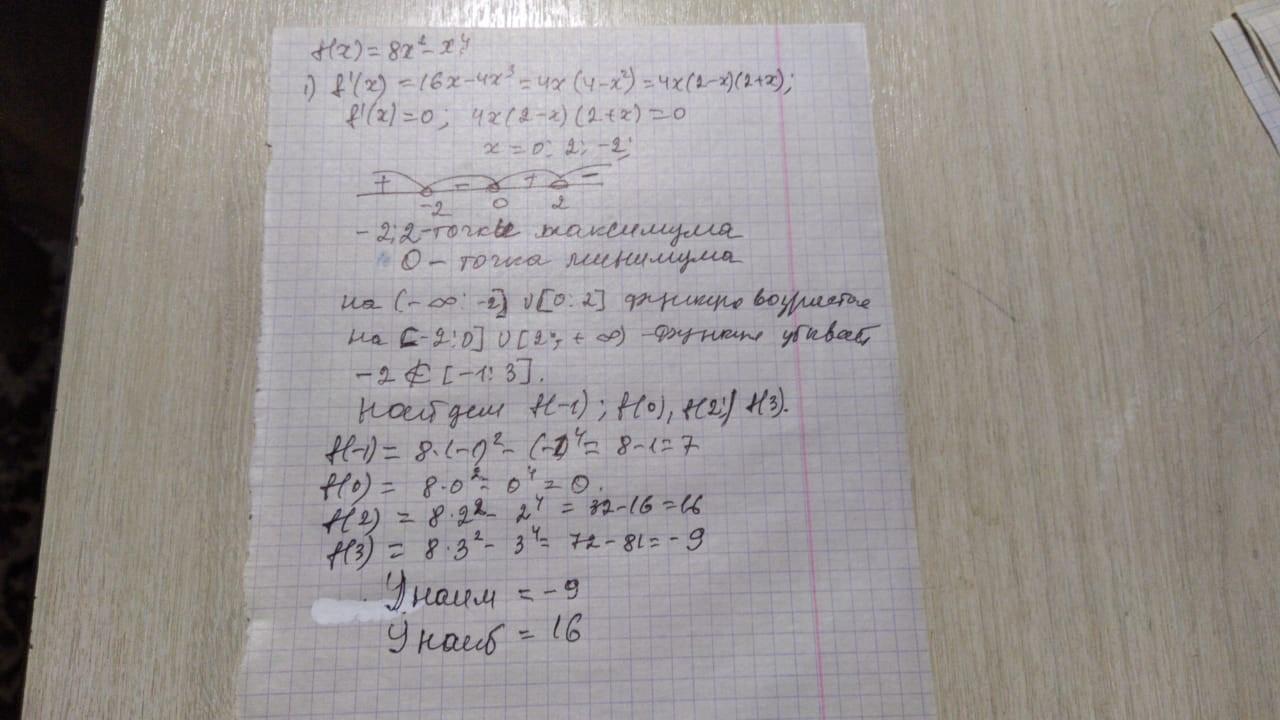 f(x) = 8x² - x⁴;
1) f'(x) = 16x - 4x³ = 4x(4-x²) = 4x(2-x)(2+x);
f'(x) = 0; 4x(2-x)(2+x) = 0
x = 0; 2; -2;
+ - + -
-2 0 2
-2; 2 - точки максимума
0 - точка минимума
на (-∞; -2] ∪ [0; 2] функцию возрастае
на [-2; 0] ∪ [2; +∞) - функция убывает
-2 ∉ [-1; 3].
Найдем f(-1); f(0), f(2); f(3).
f(-1) = 8·(-1)² - (-1)⁴ = 8-1 = 7
f(0) = 8·0² - 0⁴ = 0.
f(2) = 8·2² - 2⁴ = 32-16 = 16
f(3) = 8·3² - 3⁴ = 72-81 = -9
У наим = -9
У наиб = 16